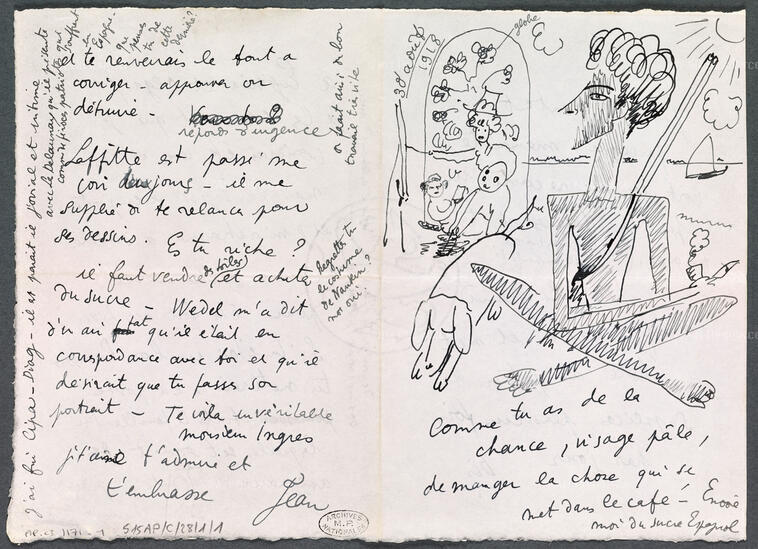 et te renverrais le tout a
corriger - approuver ou
détruire -
réponds d'urgence
Laffitte est passé me
voir deux jours - il me
supplie de te relancer pour
ses dessins. Es tu riche ?
il faut vendre des toiles et acheter
du sucre - Wedel m'a dit
qu'il était en
correspondance avec toi et qu'il
désirait que tu fasses son
portrait - Te voila un véritable
monsieur Ingres
t'admire et
t'embrasse
Jean
on fait ainsi de bon
travail très vite
Regrettes tu
le costume
de Nankin ?
moi oui.
J'ai fui Cipa - Diag - il est parait il jovial et intime
avec le Delaunay qu'il présente
comme de
Espagne.
que
penses
tu de
cette
dernière ?
AB.XIX 515AP/C/28/1/1
ARCHIVES
M.P.
NATIONALES
30 août
1918
globe
Comme tu as de la
chance, visage pâle,
de manger la chose qui se
met dans le café - Envoie
moi du sucre Espagnol